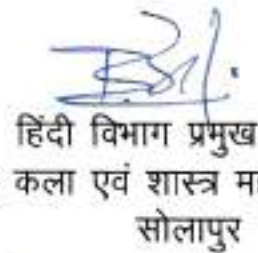 हिंदी विभाग प्रमुख
कला एवं शास्त्र
सोलापुर